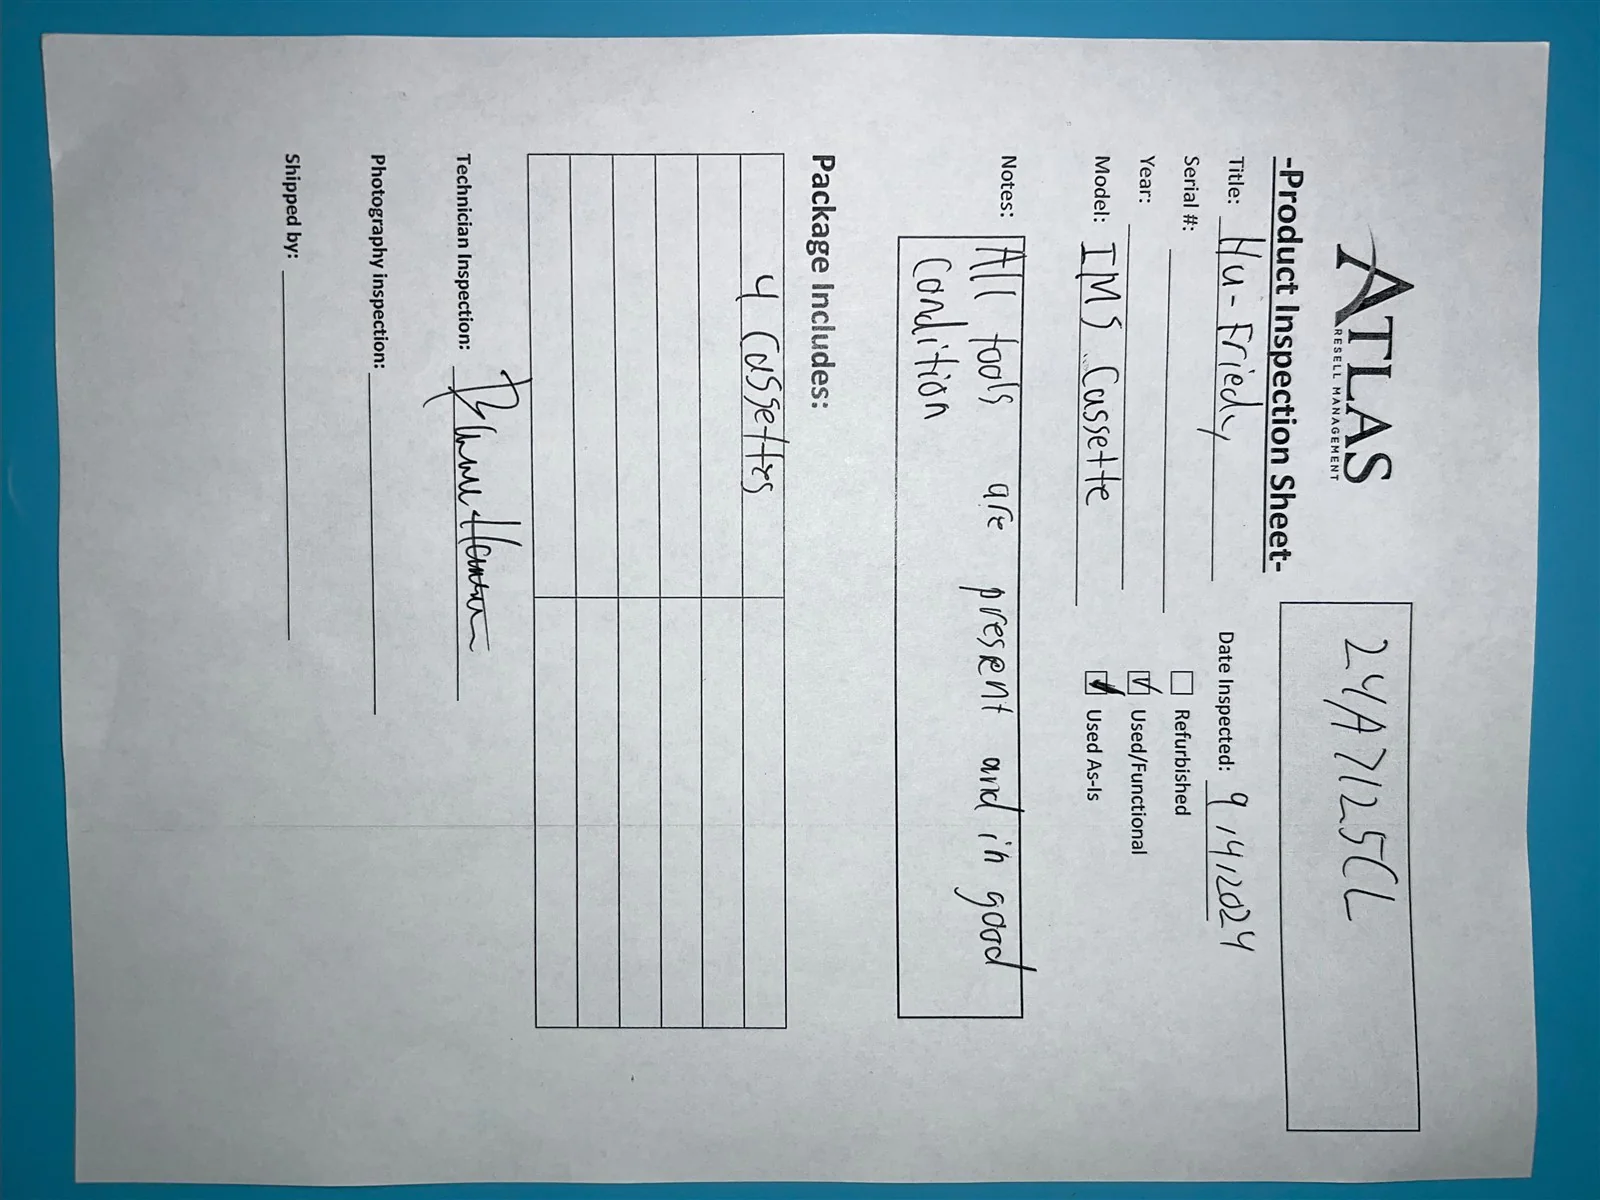 ATLAS
RESELL MANAGEMENT
24A7125CL
-Product Inspection Sheet-
Title: Hu-Friedy
Date Inspected: 9/4/2024
Serial #:
Refurbished
Year:
Used/Functional
Model: IMS Cassette
Used As-Is
Notes: All tools are present and in good
Condition
Package Includes:
4 Cassettes
Technician Inspection:
Photography inspection:
Shipped by: